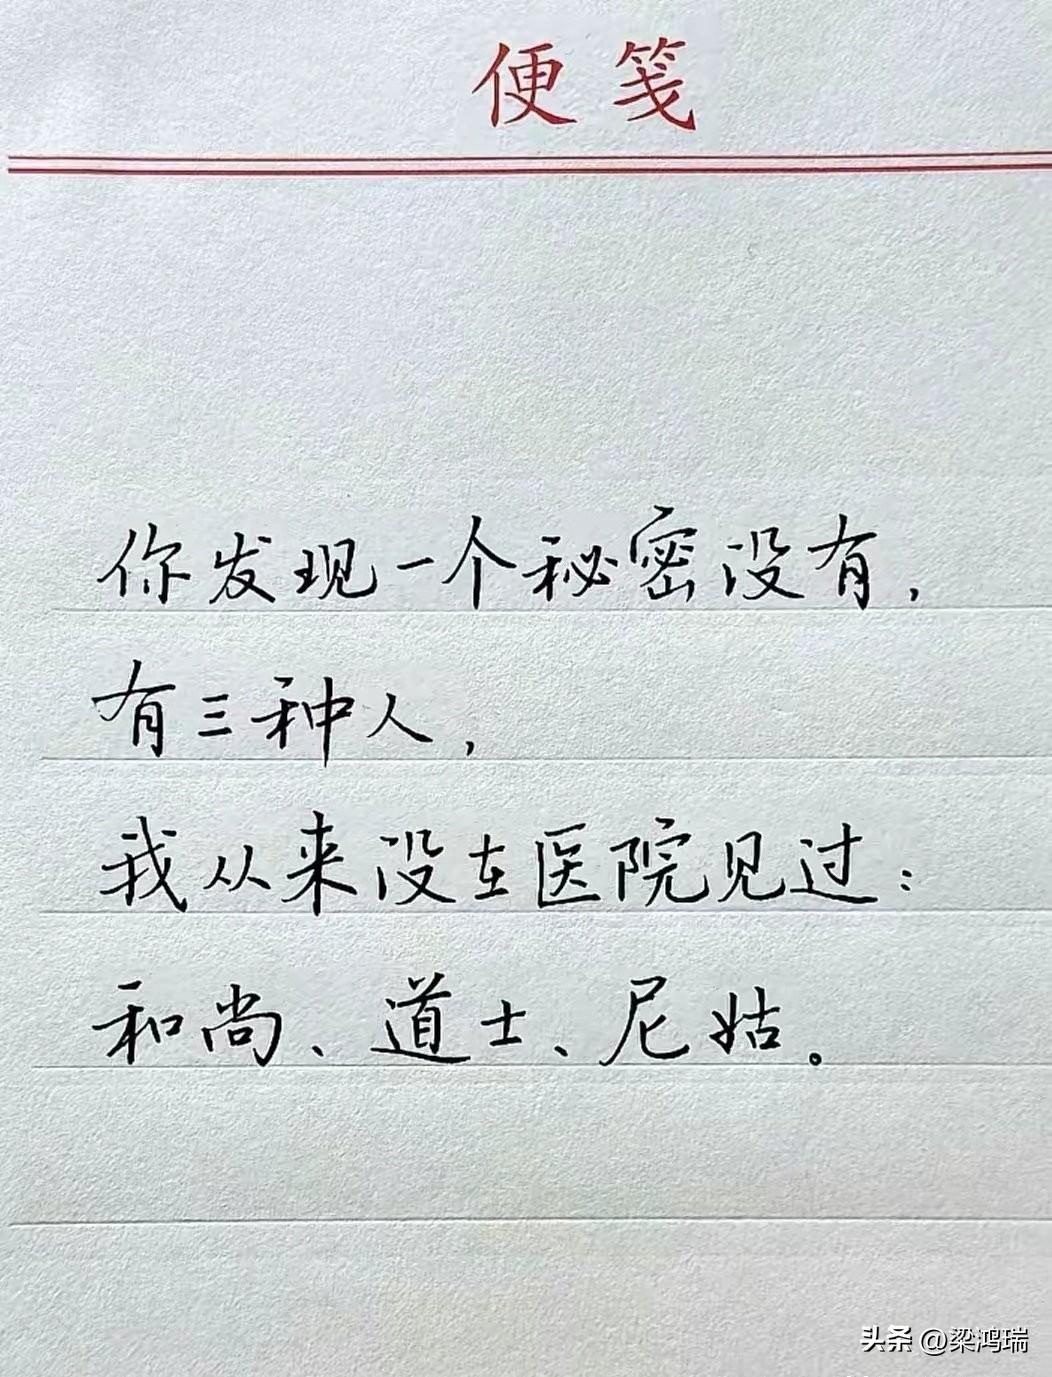 便笺
你发现一个秘密没有，
有三种人，
我从来没在医院见过：
和尚、道士、尼姑。
头条 @梁鸿瑞